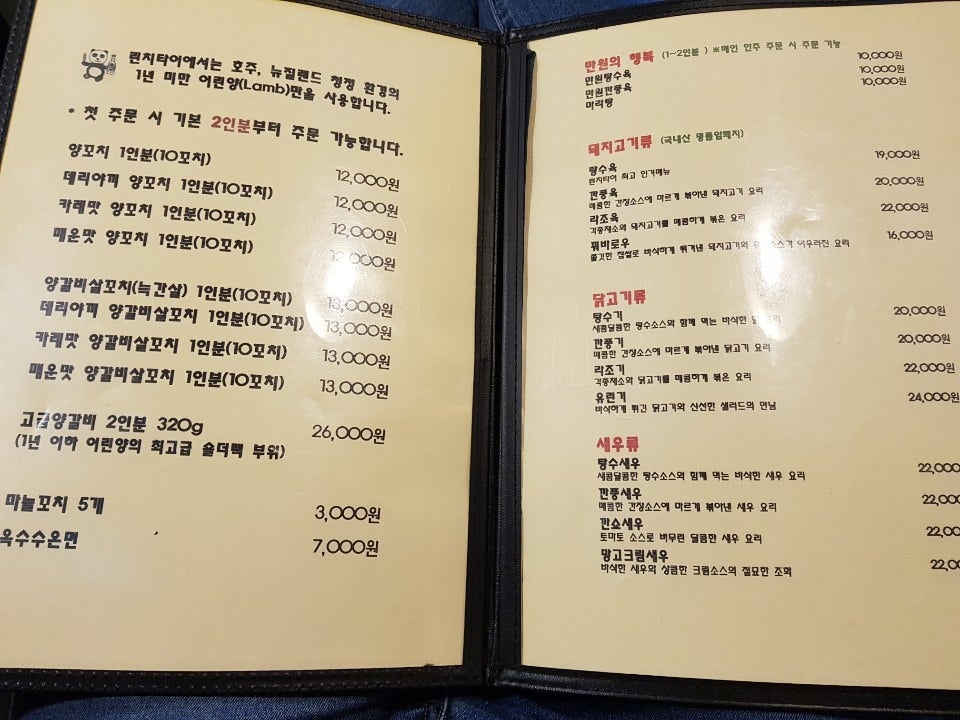 린치타이에서는 호주, 뉴질랜드 청정 환경의
1년 미만 어린양(Lamb)만을 사용합니다.
• 첫 주문 시 기본 2인분부터 주문 가능합니다.
양꼬치 1인분(10꼬치) 12,000원
데리야끼 양꼬치 1인분(10꼬치) 12,000원
카레맛 양꼬치 1인분(10꼬치) 12,000원
매운맛 양꼬치 1인분(10꼬치) 12,000원
양갈비살꼬치(늑간살) 1인분(10꼬치) 13,000원
데리야끼 양갈비살꼬치 1인분(10꼬치) 13,000원
카레맛 양갈비살꼬치 1인분(10꼬치) 13,000원
매운맛 양갈비살꼬치 1인분(10꼬치) 13,000원
고급양갈비 2인분 320g 26,000원
(1년 이하 어린양의 최고급 숄더랙 부위)
마늘꼬치 5개 3,000원
옥수수온면 7,000원
만원의 행복 (1~2인분) ※메인 안주 주문 시 주문 가능
만원탕수육 10,000원
만원깐풍육 10,000원
마라탕 10,000원
돼지고기류 (국내산 명품암퇘지)
탕수육 19,000원
린치타이 최고 인기메뉴
깐풍육 20,000원
매콤한 간장소스에 마르게 볶아낸 돼지고기 요리
라조육 22,000원
각종채소와 돼지고기를 매콤하게 볶은 요리
꿔바로우 16,000원
쫄깃한 찹쌀로 바삭하게 튀겨낸 돼지고기와 어우러진 요리
닭고기류
탕수기 20,000원
새콤달콤한 탕수소스와 함께 먹는 바삭한
깐풍기 20,000원
매콤한 간장소스에 마르게 볶아낸 닭고기 요리
라조기 22,000원
각종채소와 닭고기를 매콤하게 볶은 요리
유린기 24,000원
바삭하게 튀긴 닭고기와 신선한 샐러드의 만남
새우류
탕수새우 22,000
새콤달콤한 탕수소스와 함께 먹는 바삭한 새우 요리
깐풍새우 22,00
매콤한 간장소스에 마르게 볶아낸 새우 요리
깐쇼새우 22,00
토마토 소스로 버무린 달콤한 새우 요리
망고크림새우 22,0
바삭한 새우와 상큼한 크림소스의 절묘한 조화